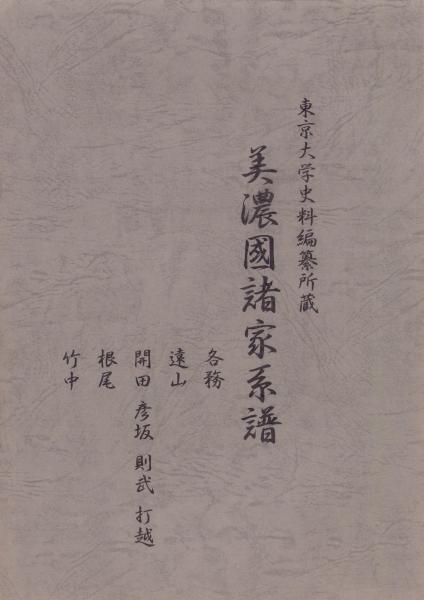 東京大学史料編纂所蔵
美濃國諸家系譜
各務
遠山
開田 彦坂 則武 打越
根尾
竹中